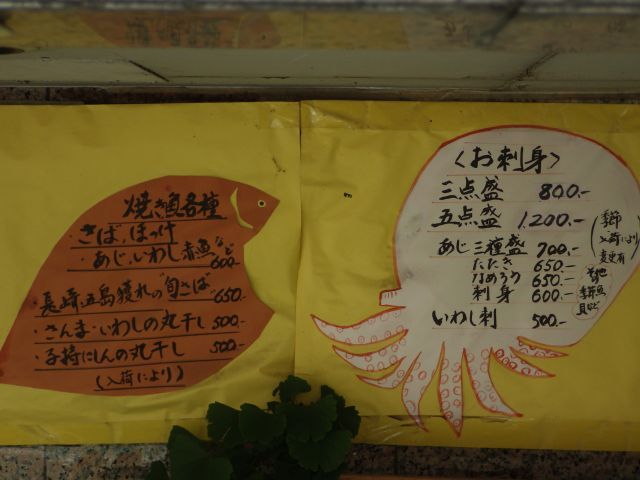 焼き魚各種
・さば、ほっけ
・あじ、いわし、赤魚など
600-
長崎・五島獲れの"旬さば"
650-
・さんま・いわしの丸干し 500-
・子持にしんの丸干し 500-
(入荷により)
〈お刺身〉
三点盛 800.-
五点盛 1.200.-
あじ三種盛 700.-
たたき 650.-
なめろう 650.-
刺身 600.-
いわし刺 500.-
季節
入荷により
変更有
その他
季節魚
貝など